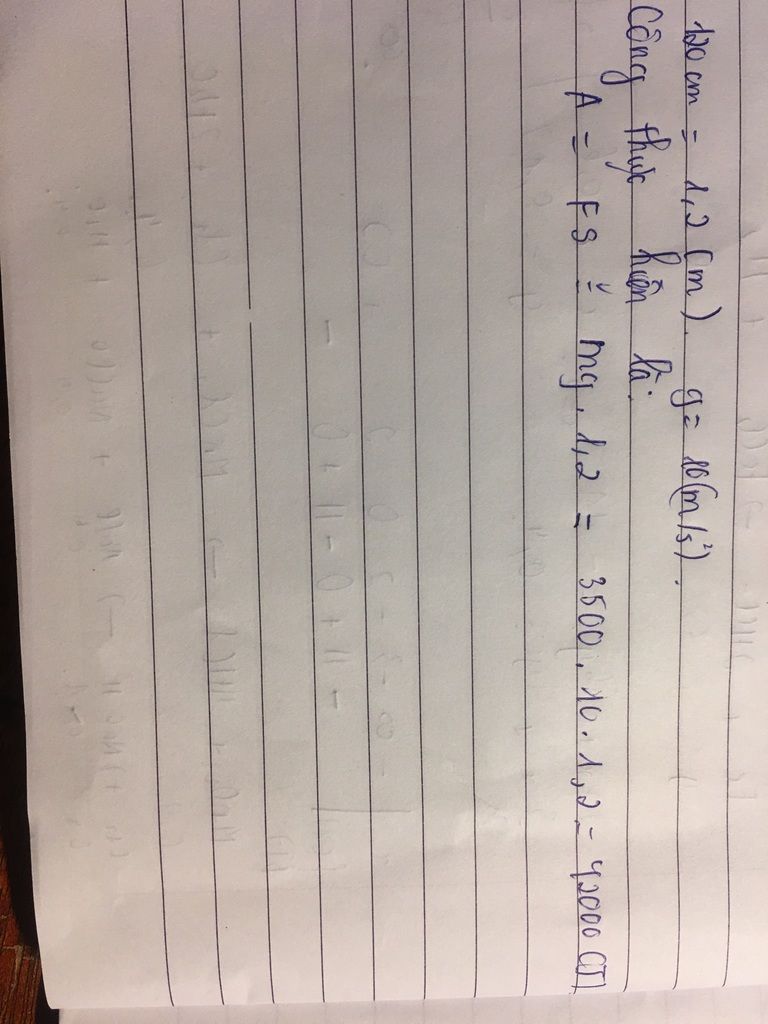 120 cm = 1,2 (m). g = 10 (m/s²).
Công thực hiện là:
A = FS = mg. 1,2 = 3500. 10. 1,2 = 42000 (J)